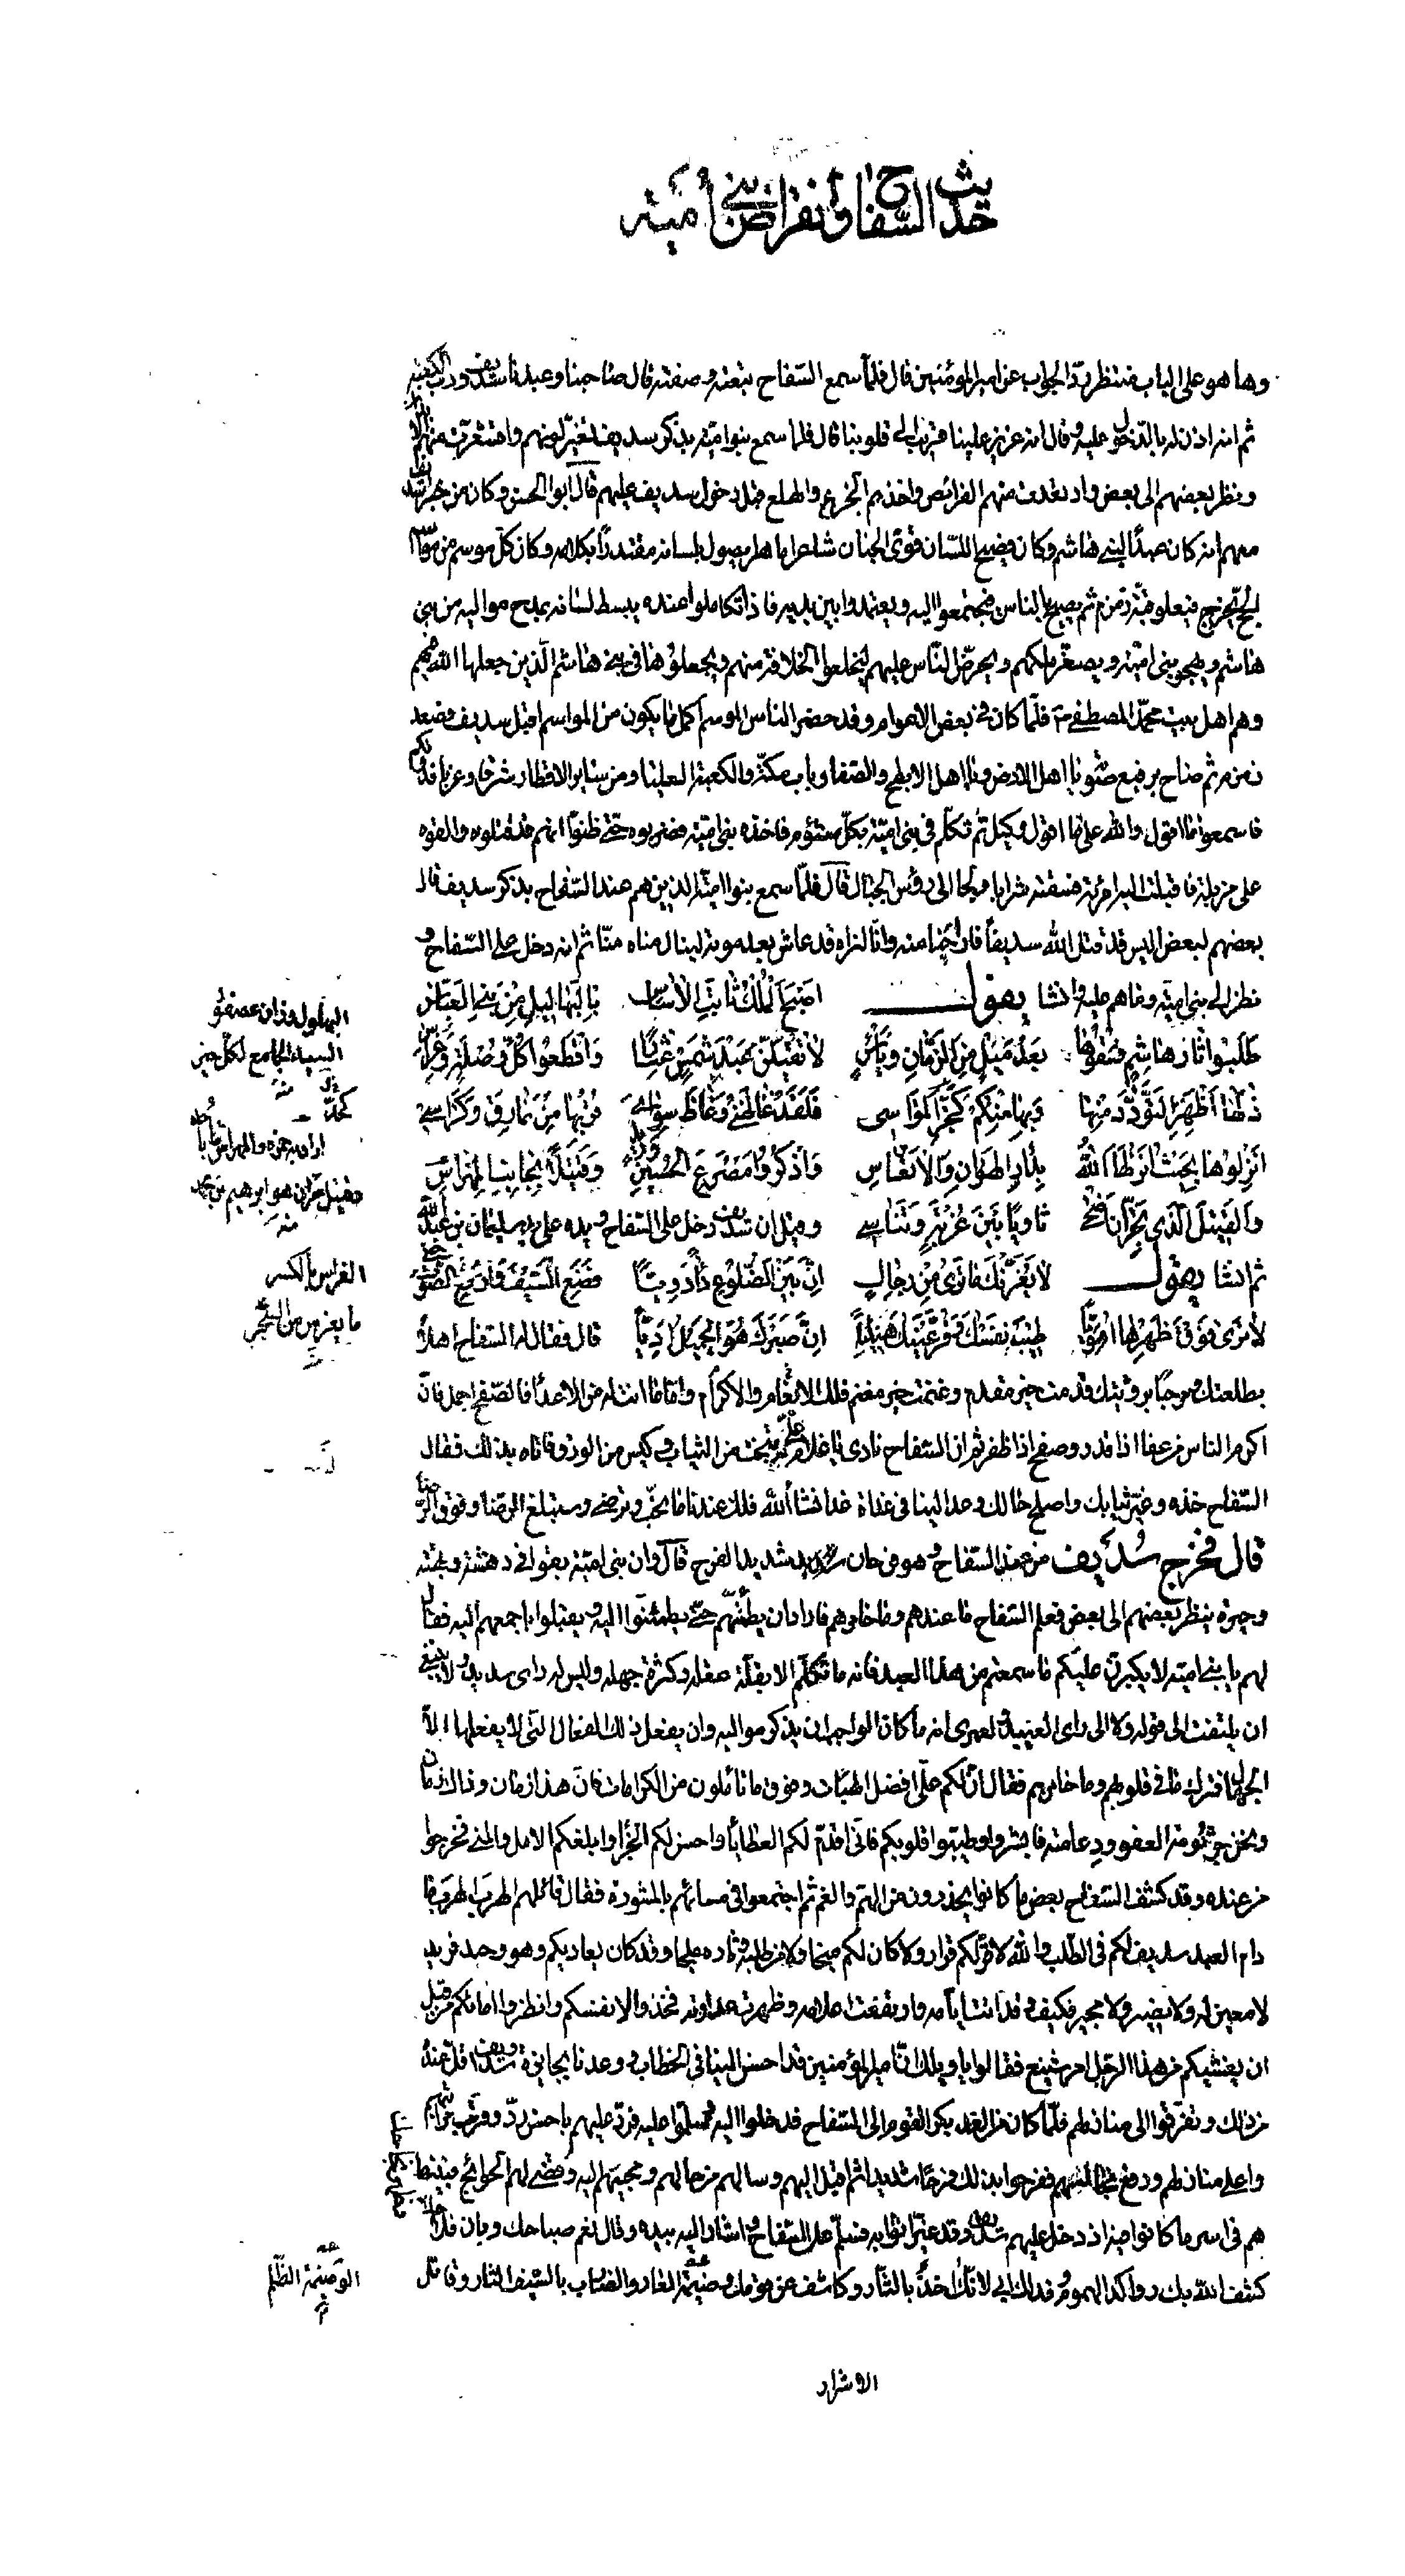 حديث السفاح وأنقراض بني أمية
وها هو على الباب منتظر ردّ الجواب عن امير المؤمنين قال فلمّا سمع السّفاح بنعته وصفته قال صاحبنا وعبدنا سديف وربّ الكعبة
ثم انه اذن له بالدّخول عليه وقال انه عزيز علينا قريب الى قلوبنا قال فلما سمع بنوا اميّه بذكر سديف تغيّر لونهم واقشعرّت منهم
ونظر بعضهم الى بعض وارتعدت منهم الفرائص واخذهم الجزع والهلع قبل دخول سديف عليهم قال ابو الحسن وكان من خبر سديف
معهم انه كان عبدًا لبني هاشم وكان فصيح اللسان قوىّ الجنان شاعرا ماهرا يصول بلسانه مقتدرًا بكلامه وكان كلّ موسم من مواسم
الحجّ يخرج فيعلو قبّة زمزم ثم يصيح بالناس فيجتمعوا اليه ويعتمدوا بين يديه فاذا تكاملوا عنده يبسط لسانه بمدح مواليه من بني
هاشم ويهجو بنى اميّة ويصغّر ملكهم ويحرضّ النّاس عليهم ليخلعوا الخلافة منهم ويجعلوها فى بني هاشم الّذين جعلها اللّه فيهم
وهم اهل بيت محمّد المصطفى ص فلمّا كان فى بعض الاعوام وقد حضر الناس الموسم اكمل ما يكون من المواسم اقبل سديف فصعد
زمزم ثم صاح برفيع صوته يا اهل الارض ويا اهل الابطح والصّفا وباب مكّة والكعبة العليا ومن سائر الاقطار شرقا وغربا فدونكم
فاسمعوا ما اقول والله على ما اقول وكيل ثم تكلّم فى بنى اميّة بكلّ مشؤم فاخذه بنى اميّة فضربوه حتى ظنّوا انهم قد قتلوه والقوه
على مزبلة فاقبلت اليه امرئة فسقته شرابا والجا الى رؤس الجبال قال فلمّا سمع بنوا اميّة الذين هم عند السّفاح بذكر سديف قال
بعضهم لبعض اليس قد قتل اللّه سديفاً فارحنا منه وانّا لنراه قد عاش بعد موته لينال مناه منّا ثم انه دخل على السّفاح و
نظر الى بنى اميّة وما هم عليه وانشا يقول اصبح الملك ثابت الاساس بالبهاليل من بني العبّاس
طلبوا ثار هاشم فشفوها بعد ميل من الزّمان وياس لا تقيلنّ عبد شمس عثارًا واقطعوا كلّ رقلة وغراس
ذلّها اظهر التّودّد منها وبها منكم كحزّ المواسى فلقد غاظني وغاظ سوائي قربها من نمارق وكراسي
انزلوها بحيث انزلها اللّه بدار الهوان والاتعاس واذكروا مصرع الحسين وزيد وقتيلًا بجانب المهراس
والقتيل الّذي بحرّان اضحى ثاويًا بين غربة وتناسي وقيل ان سديف دخل على السّفاح ويده على يد سليمان بن عبد اللّه
ثم انشا يقول لا يغرّنك ما ترى من رجال انّ بين الضّلوع داءً دويّا فضع السّيف وارفع السّوط حتى
لا ترى فوق ظهرها امويّا طبت نفسًا وقرّ عينك قال فقال له السّفاح اهلًا
بطلعتك ومرحبًا برؤيتك قدمت خير مقدم وغنمت خير مغنم فلك الانعام والاكرام وامّا ما انت له من الاعدآء فالصّفح اجمل فانّ
اكرم الناس من عفا اذا قدر وصفح اذا ظفر ثم ان السّفاح نادى يا غلام علىّ بتخت من الثياب وكيس من الورق فاتاه بذلك فقال
السّفاح خذه وغيّر ثيابك واصلح حالك وعد الينا فى غداة غد انشا اللّه فلك عندنا ما تحبّ وترضى وستبلغ الرضا وفوق الرّضا
قال فخرج سديف من عند السّفاح وهو فرحان شديد الفرح قال وان بني امية بقوا فى دهشة
وحيرة ينظر بعضهم الى بعض فعلم السّفاح ما عندهم وما خامرهم فاراد ان يطمّنهم حتى يطمئنّوا اليه ويقبلوا باجمعهم اليه فقال
لهم يا بني اميّه لا يكبرنّ عليكم ما سمعتم من هذا العبد فانه ما تكلّم الا بقلّة عقله وكثرة جهله وليس له راى سديد ولا ينبغي
ان يلتفت الى قوله ولا الى راى العبيد ولعمرى انه ما كان الواجب ان يذكر مواليه وان يفعل ذلك الفعال التى لا يفعلها الّا
الجهال ما فى قلوبهم وما خامرهم فقال ان لكم عليّ افضل الهبات وفوق ما تاملون من الكرامات فانّ هذا زمان وذاك زمان
ونحن جرثومة العفو ودعامته فابشروا وطيبوا قلوبكم فانّى اقدّم لكم العطايا واحسن لكم الجزآء وابلغكم الامل والمنى فخرجوا
من عنده وقد كشف السّفاح بعض ما كانوا يحذرون من الهمّ والغم ثم اجتمعوا فى مسائهم بالمشورة فقال قائلهم الهرب الهرب ما
دام العبد سديف لكم فى الطّلب واللّه لا قرّ لكم قرار ولا كان لكم وقد كان يعاديكم وهو وحيد فريد
لا معين له ولا نصير ولا مجير فكيف وقد وارتفعت اعلامه وظهرت عداوته فخذوا لانفسكم وانظروا امامكم من قبل
ان يغشيكم من هذا الرّجل امر شنيع فقالوا يا ويلك انّ امير المؤمنين قد احسن الينا فى الخطاب ووعدنا بجايزة وسديف اقلّ عنده
من ذلك وتفرّقوا الى منازلهم فلمّا كان من الغد بكر القوم الى السّفاح فدخلوا اليه فسلّموا عليه فردّ عليهم باحسن ردّ وقرّب مراتبهم
واعلى منازلهم ورفع مجالسهم ففرحوا بذلك فرحًا شديدا ثم اقبل اليهم وسالهم عن حالهم ومجيئهم اليه وقضى لهم الحوائج فبينما
هم فى اسر ما كانوا فيه اذ دخل عليهم سديف وقد غيّر اثوابه فسلّم على السّفاح واشار اليه بيده وقال نعم صباحك وبان فلاحك
كشف اللّه بك رواكد الهموم فداك ابى لانّك اخذ بالثأر وكاشف عن قومك وضيمة العار والضارب بالسّيف الثار وقاتل
الاشرار
البهلول وزان عصفور
السيد الجامع لكلّ خير
منه
اراد به حمزه والمهراس ماء باحد
قتيل حرّان هو ابرهيم بن محمد
منه
الغراس بالكسر
ما يغرس من الشّجر
الوضيمة الظّلم